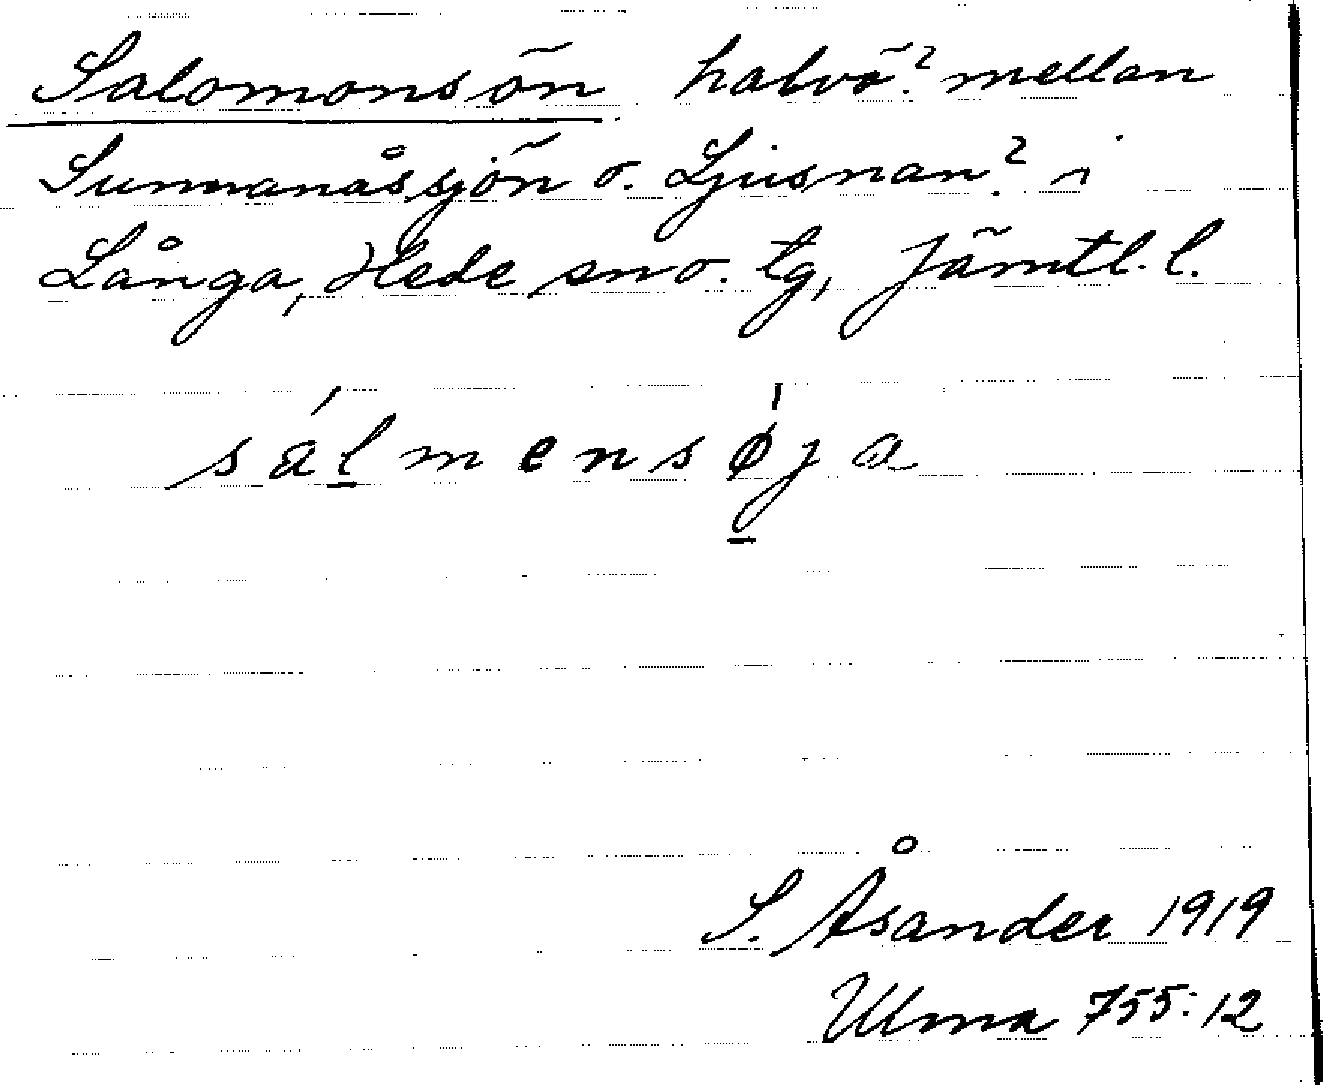 Salomonsön halvö? mellan
Sunnanåssjön o. Ljusnan? i
Långa, Hede sn o. tg, Jämtl. l.
sálmensø̨ja
S. Åsander 1919
Ulma 755:12